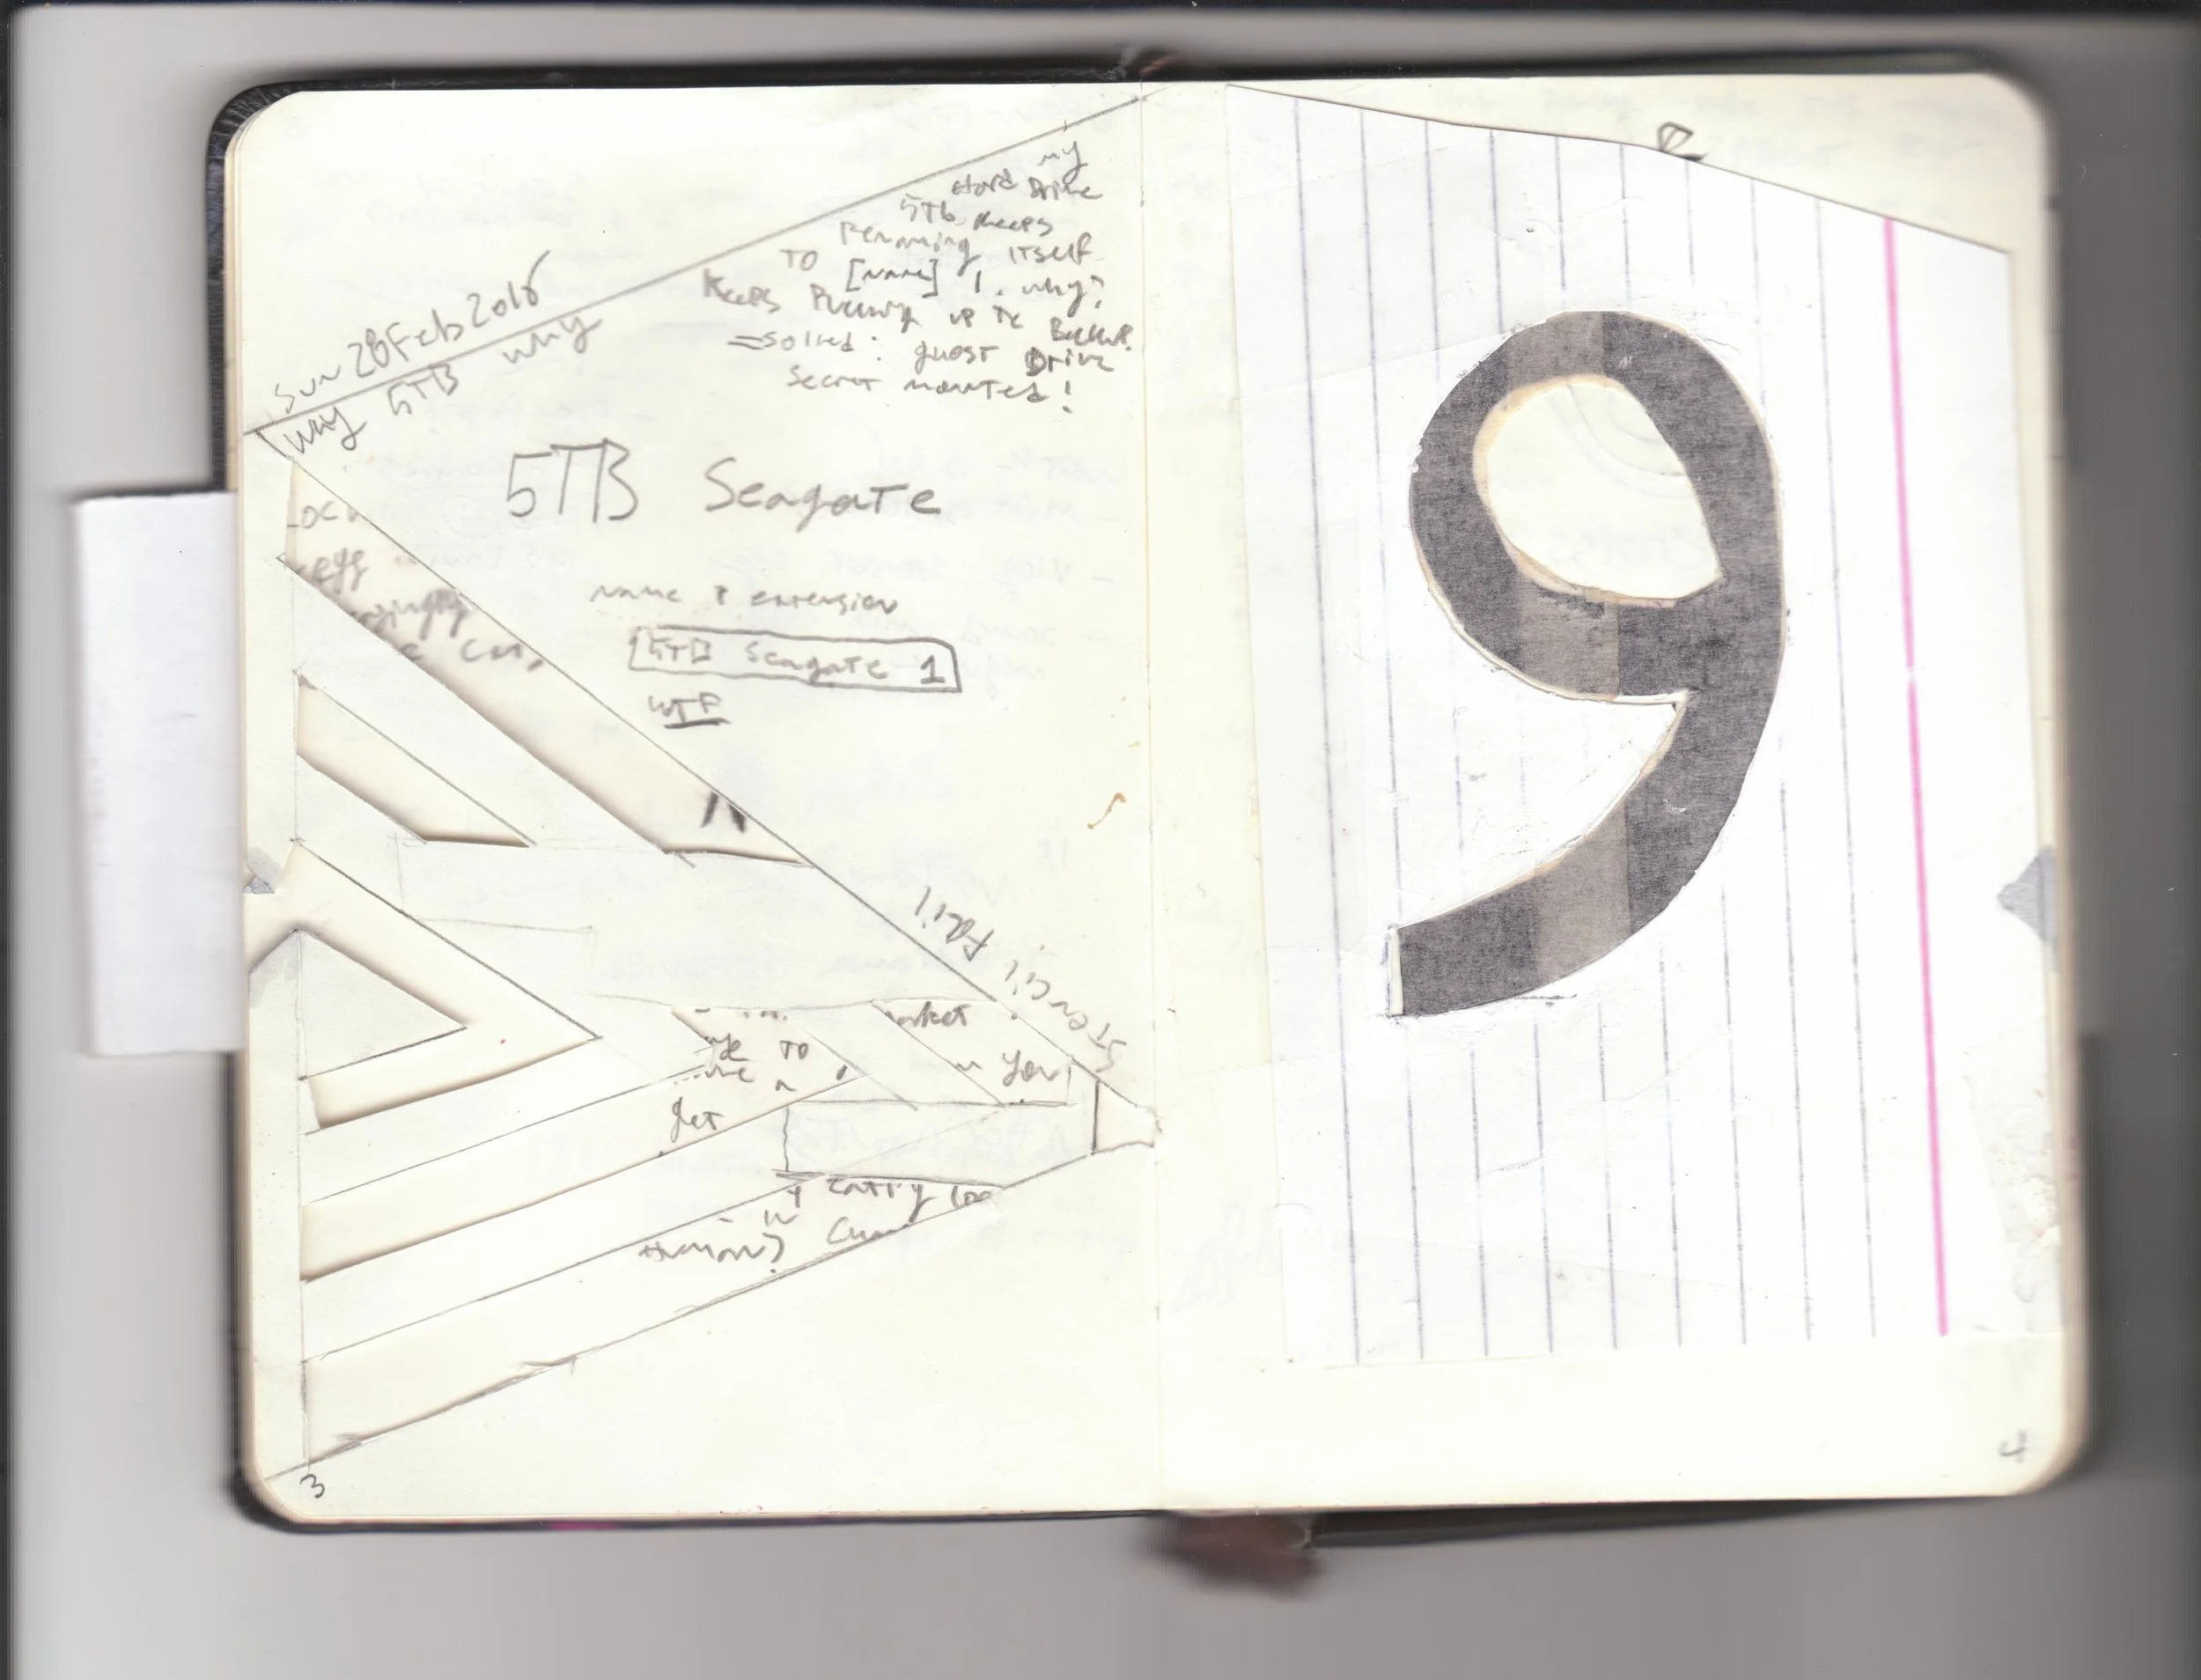 Sun 28 Feb 2016
why 5TB why
my
Hard Drive
5Tb keeps
Renaming itself
TO [name] 1. why?
Keeps Fucking up Tc Backup.
=Solved: ghost Drive
Secret mounted!
5TB Seagate
name & extension
5TB Seagate 1
WTF
egg
Stencil Fail
arket
TO
n you
get
y entry
3
9
4